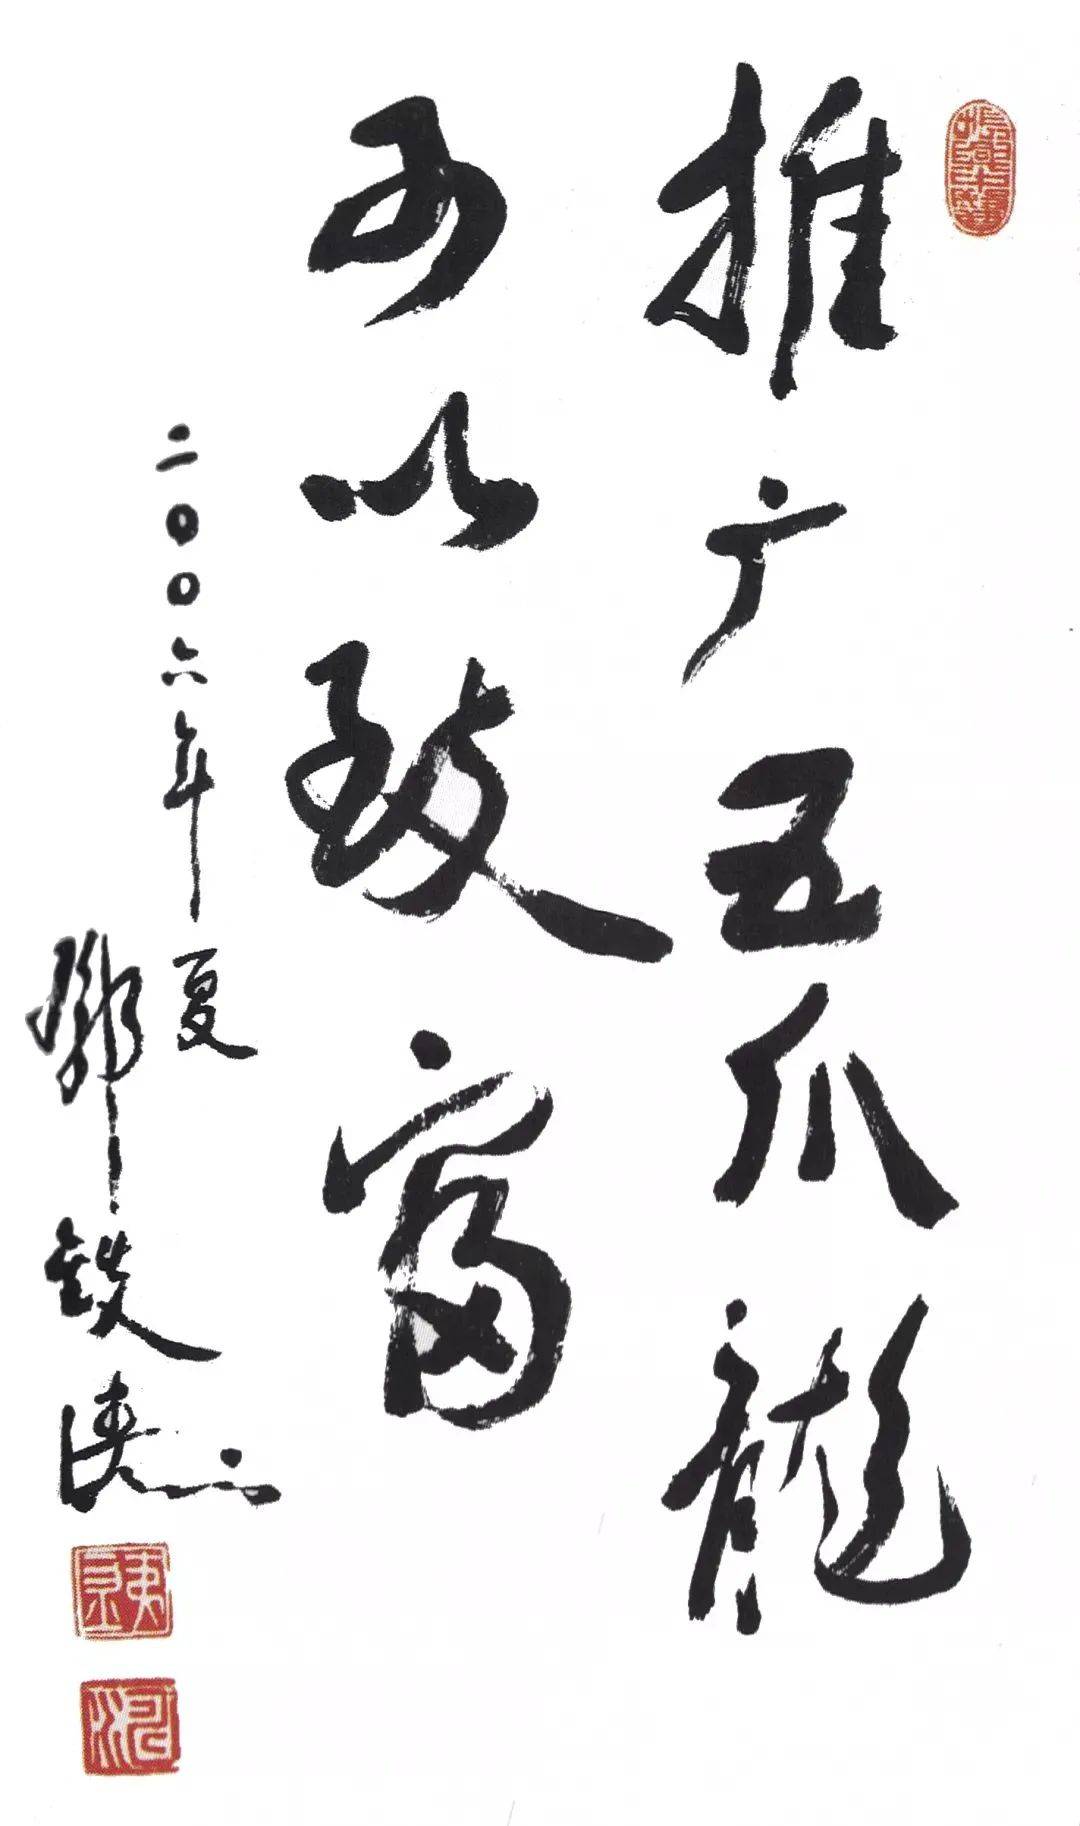 推广五爪龙
可以致富
二〇〇六年夏
邓铁涛